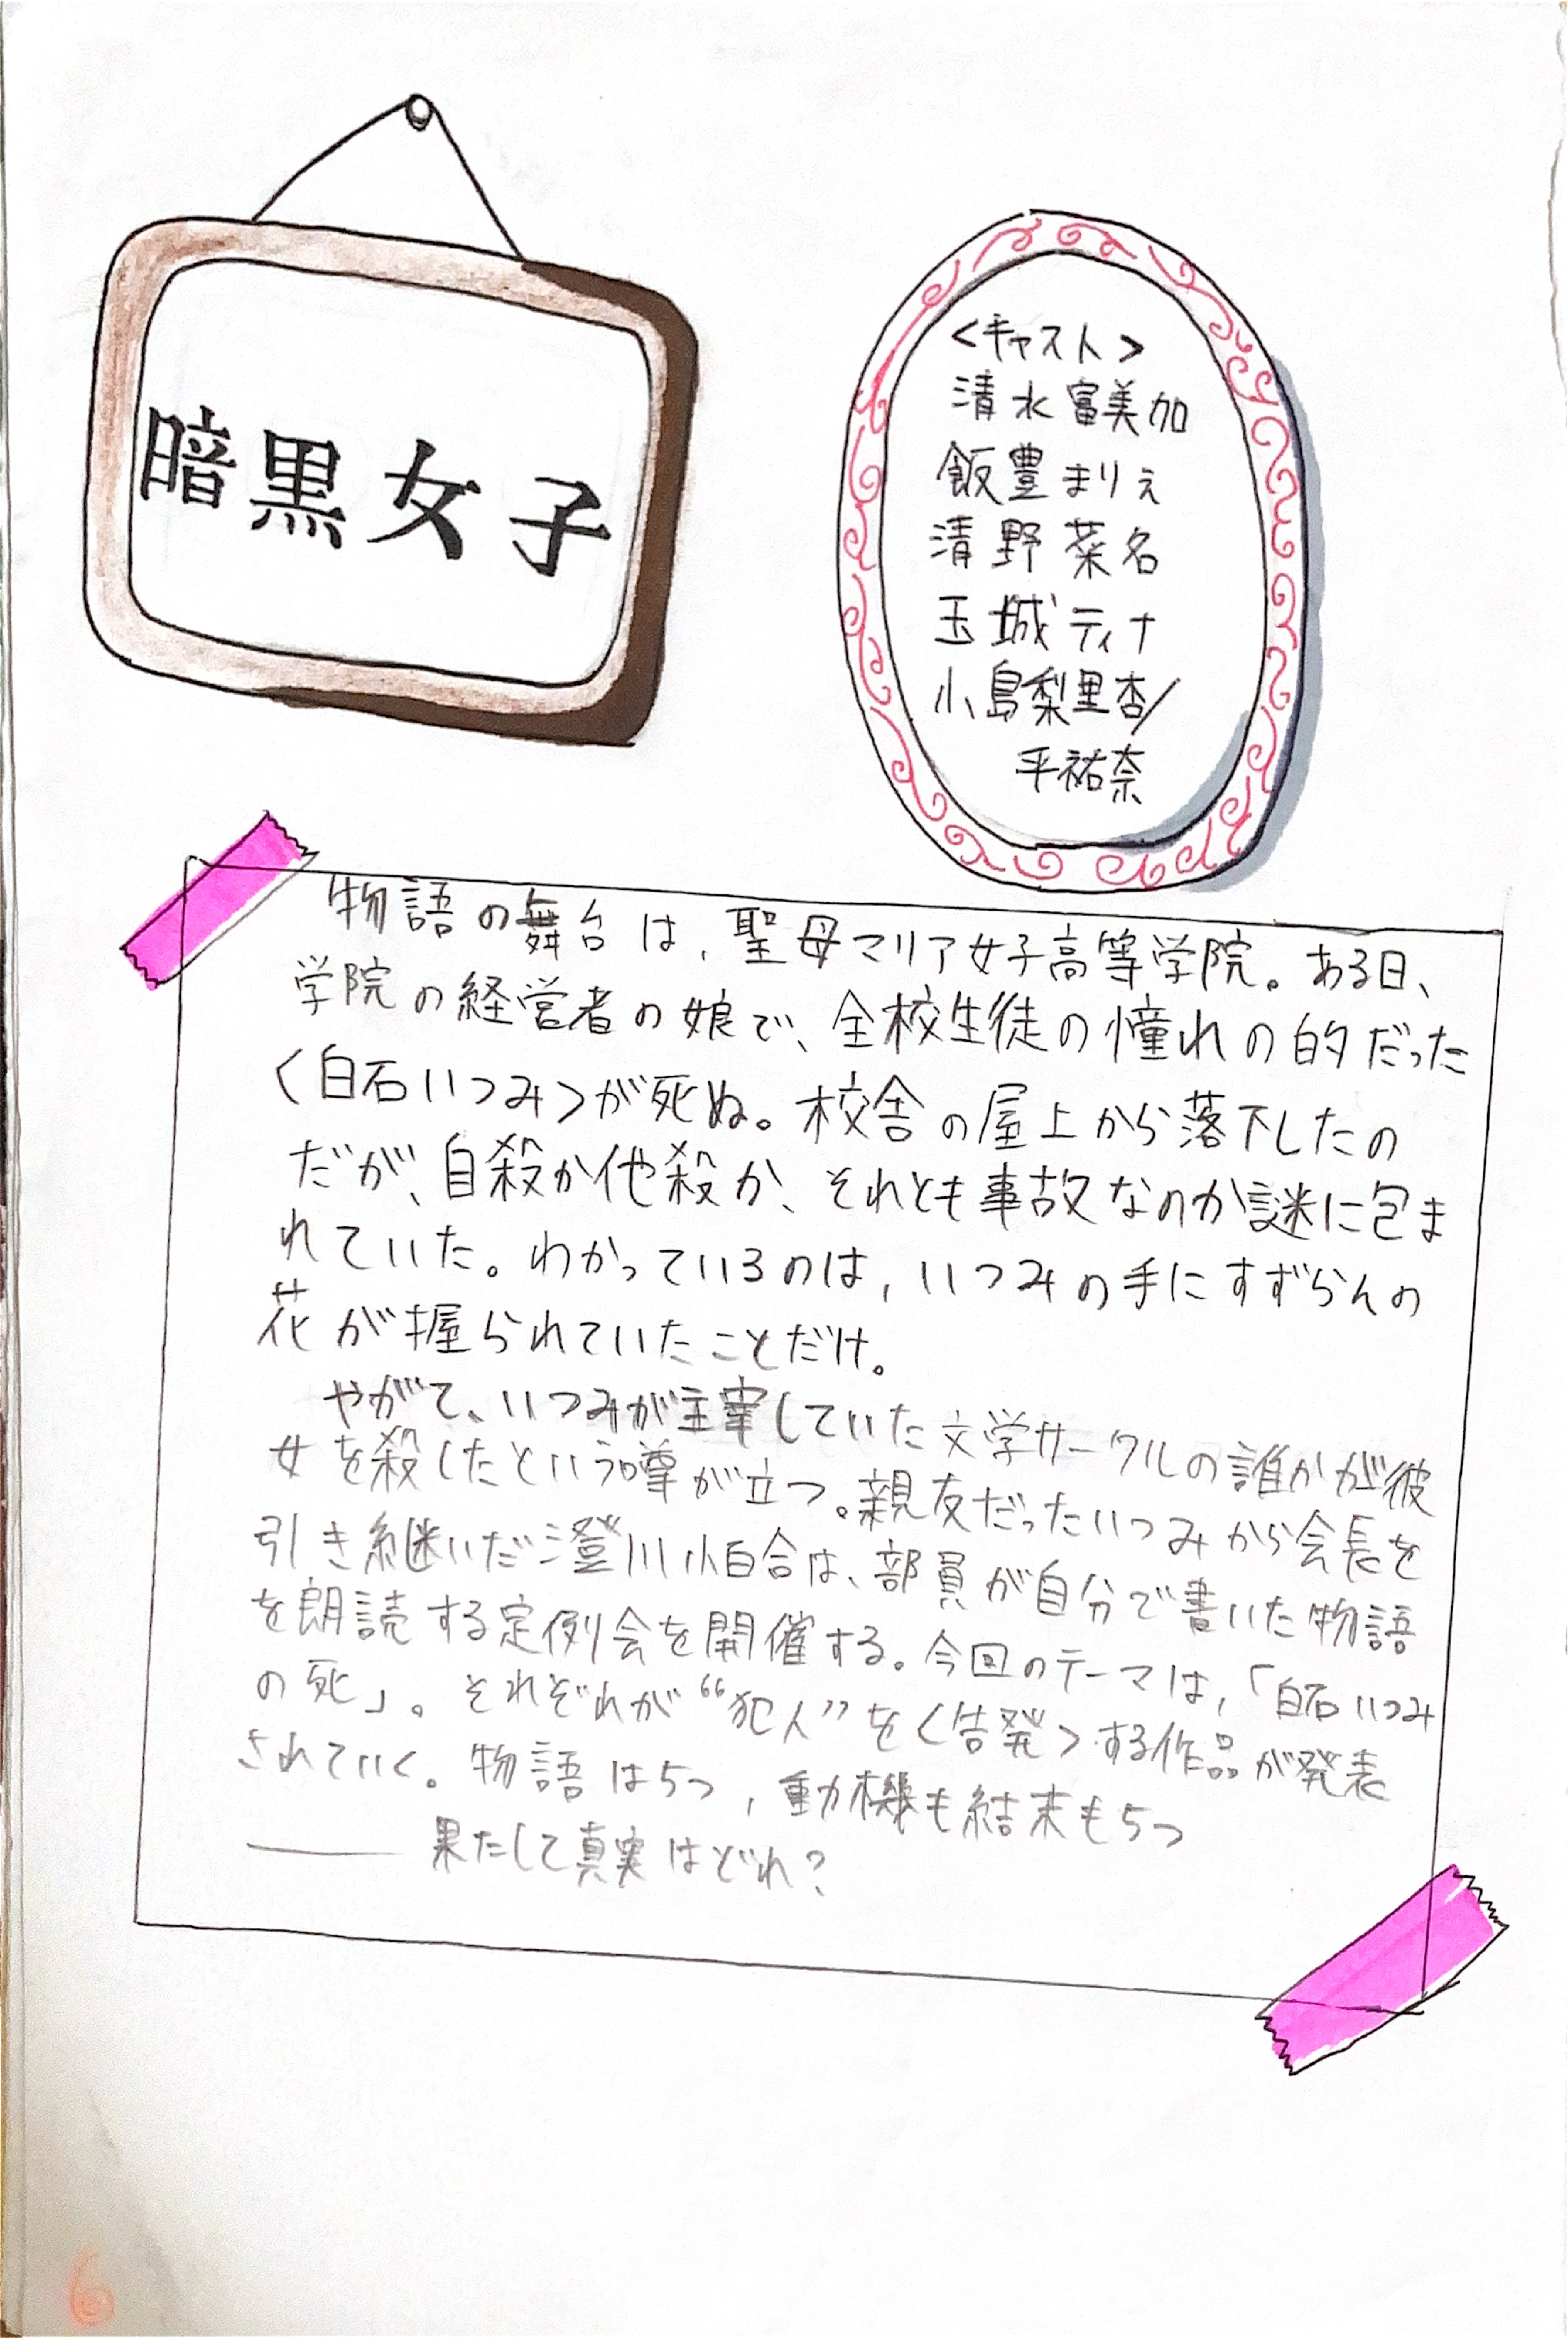 暗黒女子
<キャスト>
清水富美加
飯豊まりえ
清野菜名
玉城ティナ
小島梨里杏/
平祐奈
物語の舞台は,聖母マリア女子高等学院。ある日、
学院の経営者の娘で、全校生徒の憧れの的だった
<白石いつみ>が死ぬ。校舎の屋上から落下したの
だが、自殺か他殺か、それとも事故なのか謎に包ま
れていた。わかっているのは,いつみの手にすずらんの
花が握られていたことだけ。
やがて、いつみが主宰していた文学サークルの誰かが彼
女を殺したという噂が立つ。親友だったいつみから会長を
引き継いだ澄川小百合は、部員が自分で書いた物語
を朗読する定例会を開催する。今回のテーマは,「白石いつみ
の死」。それぞれが“犯人”を<告発>する作品が発表
されていく。物語は5つ,動機も結末も5つ
――果たして真実はどれ?
6